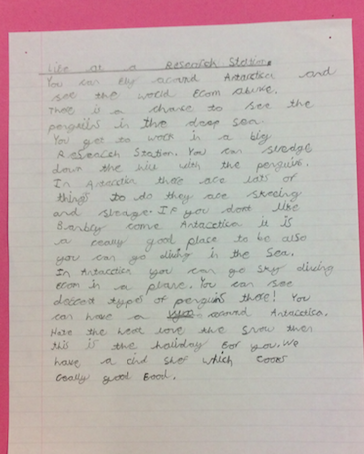 Life at a Research Station.
You can fly around Antarctica and
see the world from above.
There is a chance to see the
penguins in the deep sea.
You get to work in a big
Research Station. You can sledge
down the hill with the penguins.
In Antarctica there are lots of
things to do they are skeeing
and sledge. If you dont like
come Antarctica it is
a really good place to be also
you can go diving in the Sea.
In Antarctica you can go sky diving
from in a plane. You can see
types of penguins there! You
can have a around Antarctica.
Hate the heat love the snow then
this is the holiday for you. We
have a which cooks
really good food.